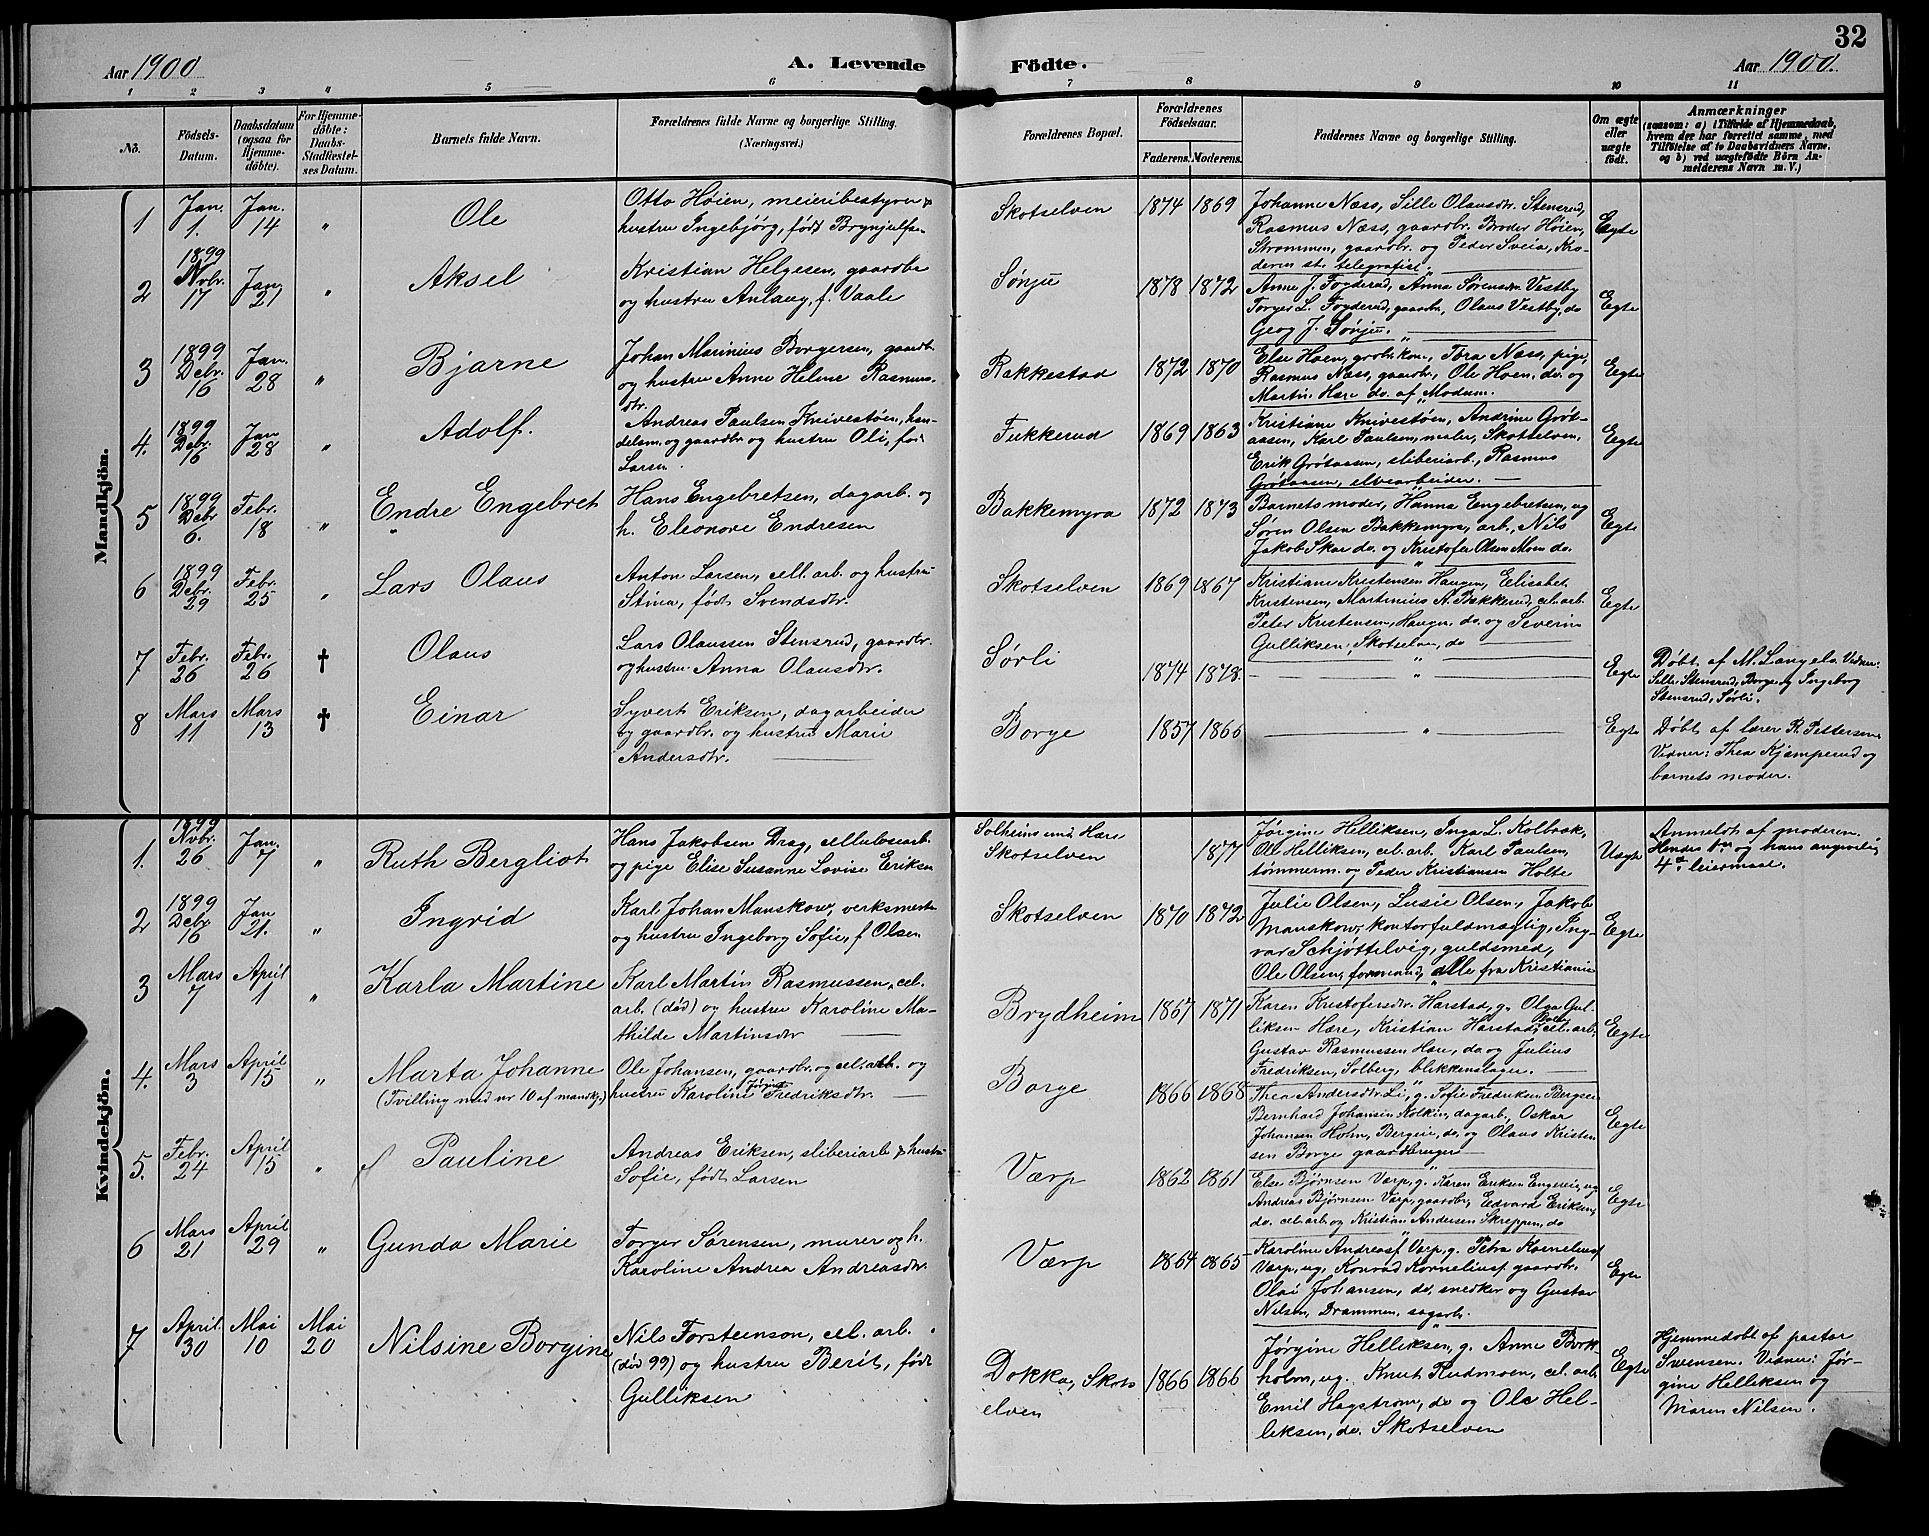 32
Aar 1900
A. Levende Födte.
Aar 1900.
1 2 3 4 5 6 7 8 9 10 11
No.
Födsels-Datum.
Daabsdatum (ogsaa for Hjemmedöbte).
For Hjemmedöbte: Daabs-Stadfæstelses Datum.
Barnets fulde Navn.
Forældrenes fulde Navne og borgerlige Stilling. (Næringsvei.)
Forældrenes Bopæl.
Forældrenes Födselsaar.
Faderens. Moderens.
Faddernes Navne og borgerlige Stilling.
Om ægte eller uægte födt.
Anmærkninger
(saasom: a) i Tilfælde af Hjemmedaab, hvem der har forrettet samme, med Tilföielse af to Daabsvidners Navne, og b) ved uægtefödte Börn Anmelderens Navn m. V.)
Mandkjön.
1 Jan. 1. Jan. 14 " Ole
Otto Høien, meieribestyrer &
hustru Ingebjörg, født Brynjulfsen
Skotselven 1874 1869
Johanne Næss, Sille Olausdr. Stensrud,
Rasmus Næss, gaardbr. Broder Høien,
Strømmen, gaardbr. og Peder Sveia, Krø-
deren st. telegrafist.
Egte
2 1899 Nvbr. 17 Jan. 21 " Aksel
Kristian Helgesen, gaardbr
og hustru Anlaug, f. Vaale
Sønju 1878 1872
Anne J. Fogderud, Anna Sørensdr. Vestby
Torger L. Fogderud, gaardbr, Olaus Vestby, do
Geog J. Sønju.
Egte
3 1899 Debr. 16 Jan. 28 " Bjarne
Johan Marinius Borgersen, gaardbr.
og hustru Anne Helene Rasmus-
dtr.
Rakkestad 1872 1870
Else Hoen, grdbr. kone, Tora Næss, pige,
Rasmus Næss, gaardbr., Ole Hoen, do. og
Martin Hære do. af Modum.
Egte
4. 1899 Debr. 16 Jan 28 " Adolf.
Andreas Paulsen Knivestøen, han-
delsm. og gaardbr og hustru Oli, født
Larsen.
Fukkerud 1869 1863
Kristiane Knivestøen, Andrine Grøt-
aasen, Karl Paulsen, maler, Skotselven,
Erik Grøtaasen, sliberiarb., Rasmus
Grøtaasen, elvearbeider.
Egte
5 1899 Debr 6. Febr. 18 " Endre Engebret
Hans Engebretsen, dagarb. og
h. Eleonore Endresen
Bakkemyra 1872 1873
Barnets moder, Hanna Engebretsen, ug
Søren Olsen Bakkemyra, arb., Nils
Jakob Skar do. og Kristofer Olsen Moen do.
Egte
6 1899 Debr. 29 Febr. 25 " Lars Olaus
Anton Larsen, cell. arb. og hustru
Stina, født Svendsdtr.
Skotselven 1869 1867
Kristiane Kristensen Haugen, Elisabet
Kristensen, Martinius A. Bakkerud, cel. arb.
Peter Kristensen, Haugen do. og Severin
Gulliksen, Skotselven, do
Egte
7 Febr. 26 Febr. 26 † Olaus
Lars Olaussen Stensrud, gaardbr.
og hustru Anna Olausdtr.
Sørli 1874 1878. "
Egte
Døbt af M. Langelo. Vidner:
Sille Stensrud, Borge og Ingeborg
Stensrud, Sørli.
8 Mars 11 Mars 13 † Einar
Syvert Eriksen, dagarbeider
og gaardbr. og hustru Marie
Andersdtr.
Borge 1857 1866 "
Egte
Døbt af lærer R. Pettersen.
Vidner: Thea Kjæmperud og
barnets moder.
Kvindekjön.
1. 1899 Novbr. 26 Jan. 7 " Ruth Bergliot
Hans Jakobsen Drag, cellulosearb.
og pige Elise Susanne Lovise Eriksen
Solheim und. Hære
Skotselven 1877
Jørgine Helliksen, Inga L. Kolbrak,
Ole Helliksen, cel. arb. Karl Paulsen,
tømmerm. og Peder Kristiansen Holte
Uegte
Anmeldt af moderen.
Hendes 1ste og hans angivelig
4de leiermaal.
2 1899 Debr 16 Jan 21. " Ingrid
Karl Johan Manskow, verksmester
og hustru Ingeborg Sofie, f Olsen
Skotselven 1870 1872
Julie Olsen, Lusie Olsen, Jakob
Manskow, kontorfuldmægtig, Ing-
var Schjøttelvig, guldsmed,
Ole Olsen, formand, alle fra Kristiania
Egte
3 Mars 7 April 1 " Karla Martine
Karl Martin Rasmussen, cel.
arb. (død) og hustru Karoline Ma-
thilde Martinsdtr
Brydheim 1867 1871
Karen Kristofersdr. Harstad, g. Olga Gul-
liksen Hære, Kristian Harstad, cel. arb.
Gustav Rasmussen Hære, do og Julius
Fredriksen, Solberg, blikkenslager.
Egte
4. Mars 3 April 15 " Marta Johanne
(Tvilling med nr 10 af mandkj.)
Ole Johansen, gaardbr. og cel. arb. og
hustru Karoline Jørgine Fredriksdtr.
Borge 1866 1868
Thea Andersdtr Li, g. Sofie Fredriksen Bergsen
Bernhard Johansen Kolkin, dagarb. Oskar
Johansen Holm, Bergsen, do, og Olaus Kristen
sen Borge gaardbruger
Egte
5. Febr. 24 April 15 " Pauline
Andreas Eriksen, sliberiarb & hustru
Sofie, født Larsen
Værp 1862 1861
Else Bjørnsen Værp, g. Karen Eriksen Engereia, ug
Andreas Bjørnsen Værp, gaardbr, Edvard Eriksen,
do. cel. arb og Kristian Andersen Skreppen, do
Egte
6 Mars 21 April 29 " Gunda Marie
Torger Sørensen, murer og h.
Karoline Andrea Andreasdtr
Værp 1864 1865
Karoline Andreasf Værp, g. Petra Kornelius
Værp, ug. Konrad Kornelius, gaardbr.
Olai Johansen, do, snedker og Gustav
Nilsen, Drammen, sagarb.
Egte
7 April 30 Mai 10 Mai 20 Nilsine Borgine
Nils Torsteinson, cel. arb.
(død 99) og hustru Berit, født
Gulliksen
Dokka, Skots
elven 1866 1866
Jørgine Helliksen, g. Anne Bork-
holm, ug. Knut Rudmoen, cel. arb.
Emil Hagstrøm, do og Ole Hel-
liksen, do. Skotselven
Egte
Hjemmedøbt af pastor
Svensen. Vidner: Jør-
gine Helliksen og
Maren Nilsen.